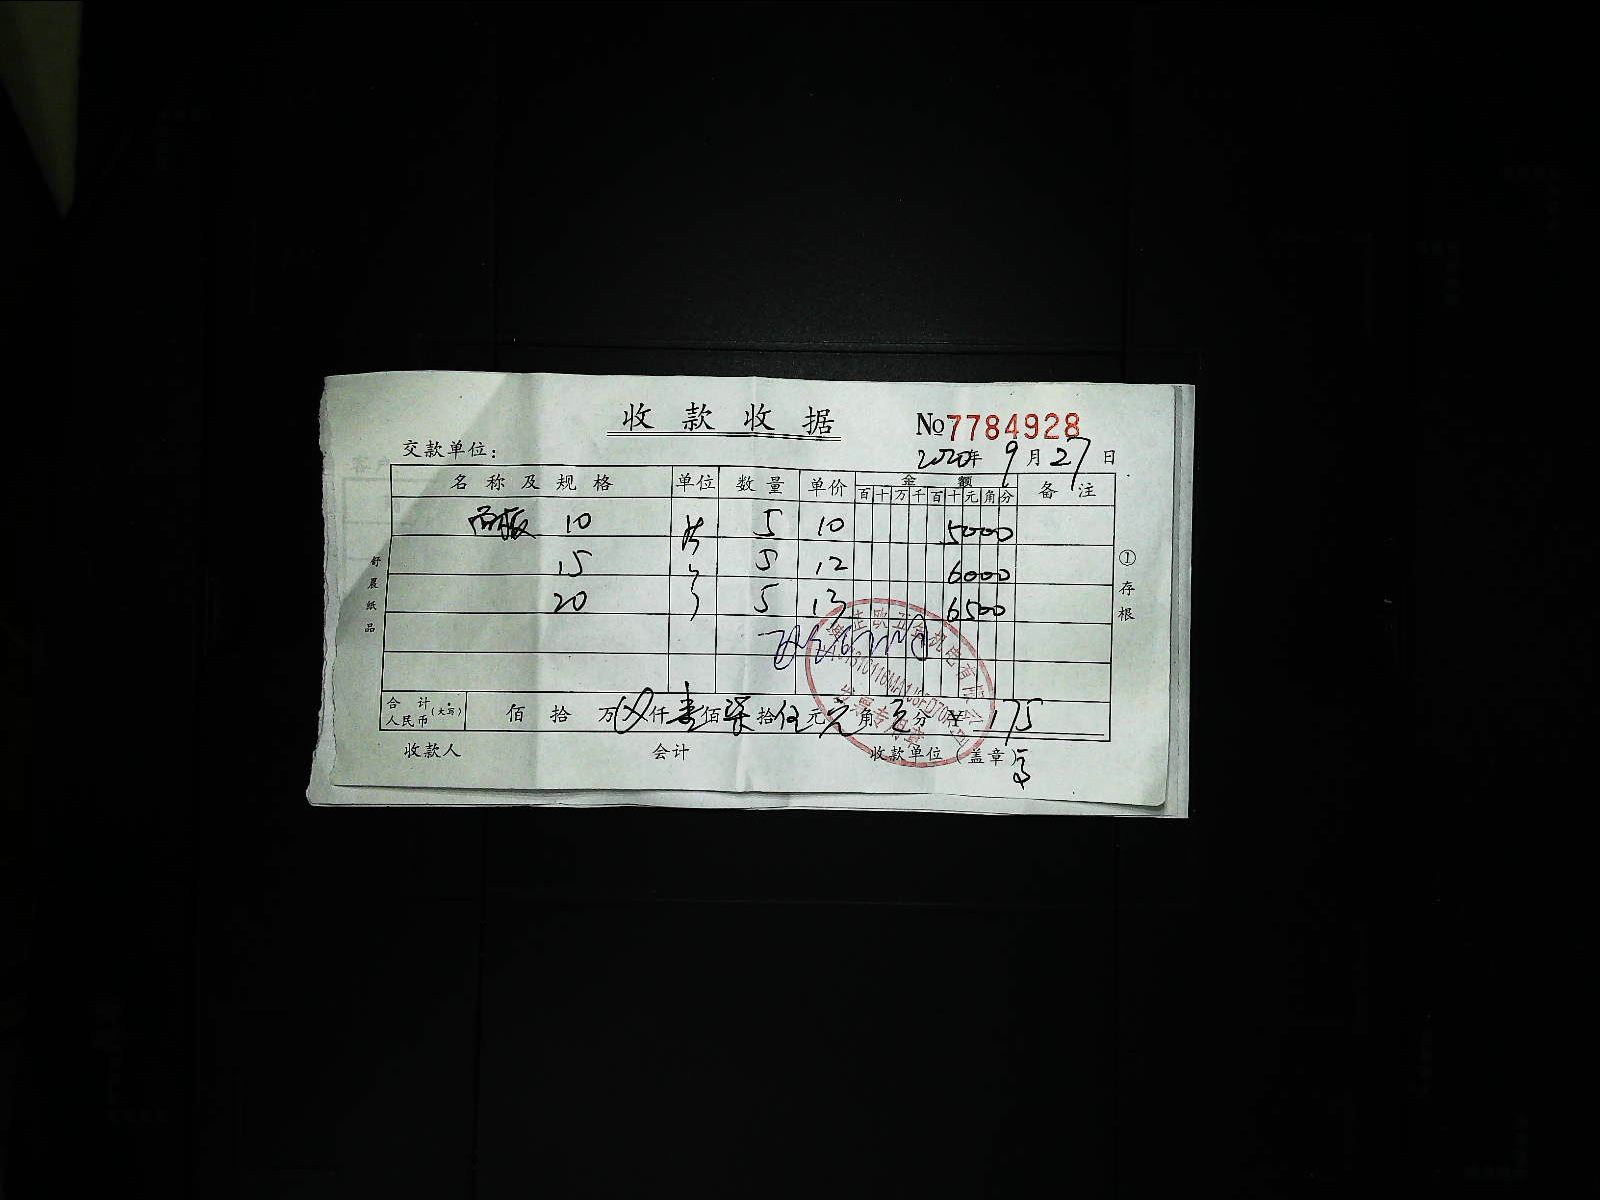 收款收据
№7784928
交款单位:
2020年9月27日
名称及规格 单位 数量 单价 金额 备注
百十万千百十元角分
板 10 5 10 5000
15 5 12 6000
20 5 13 6500
合计 人民币(大写) 佰拾万仟壹佰柒拾伍元角分 ¥ 175
收款人 会计 收款单位(盖章)
①存根
舒晨纸品